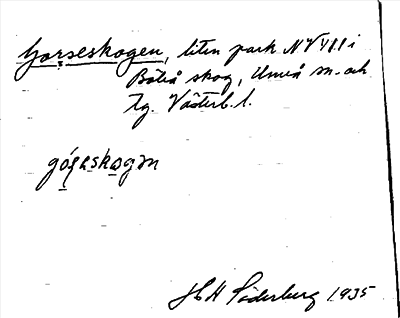 Gorseskogen, liten park NV VIII i
Böleå skog, Umeå sn. och
Tg. Västerb. l.
góṣeskogən
H Söderberg 1935